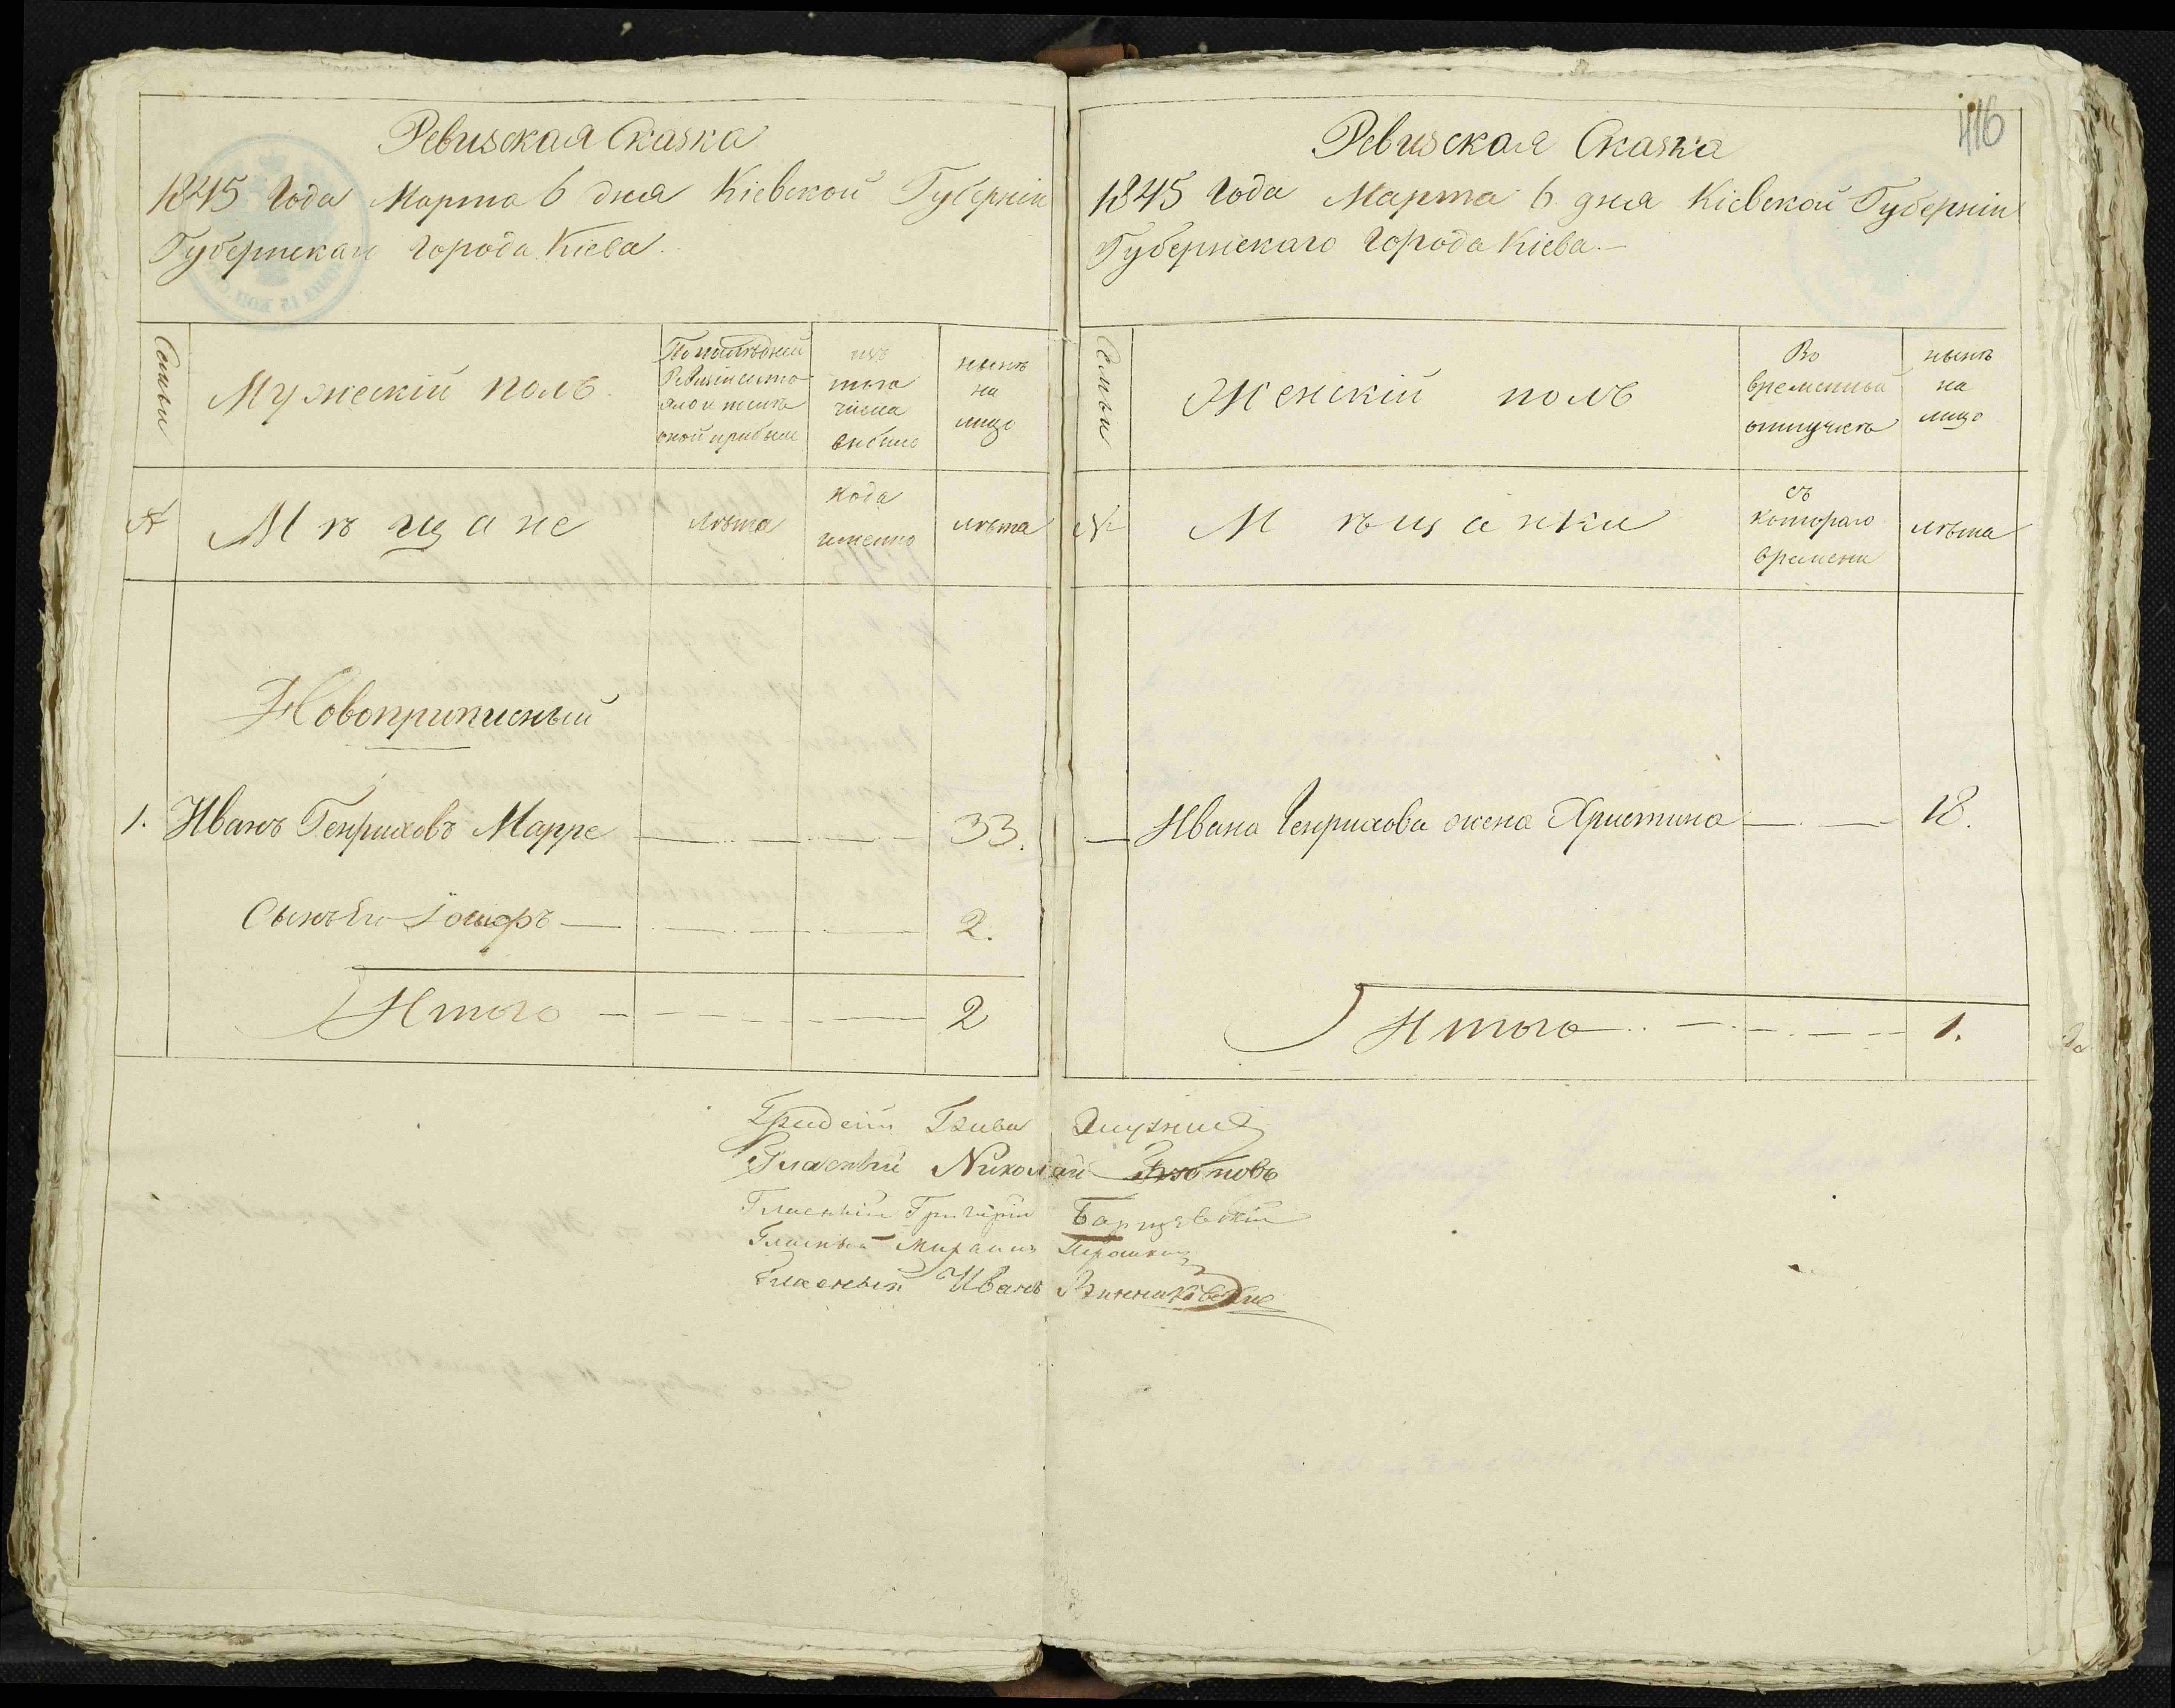 Ревизская Сказка
1845 Года Марта 6 дня Кіевской Губерніи
Губернскаго города Кіева.
Семьи
Мужескій полъ.
По послѣдней
Ревизіи состо
яло и послѣ
оной прибыло
изъ
того
числа
выбыло
нынѣ
на
лицо
№
Мѣщане
лѣта
когда
именно
лѣта
Новоприписный
1. Иванъ Генриховъ Марре 33.
Сынъ Его Іосифъ 2.
Итого 2
416
Ревизская Сказка
1845 Года Марта 6 дня Кіевской Губерніи
Губернскаго Города Кіева.
Семьи
Женскій полъ
Во
временной
отлучкѣ
нынѣ
на
лицо
№
Мѣщанки
съ
котораго
времени
лѣта
Ивана Генрихова жена Христина 18.
Итого 1.
Гласный Николай
Гласный Григорій Барщевскій
Гласный
Гласный Иванъ Винниковскій